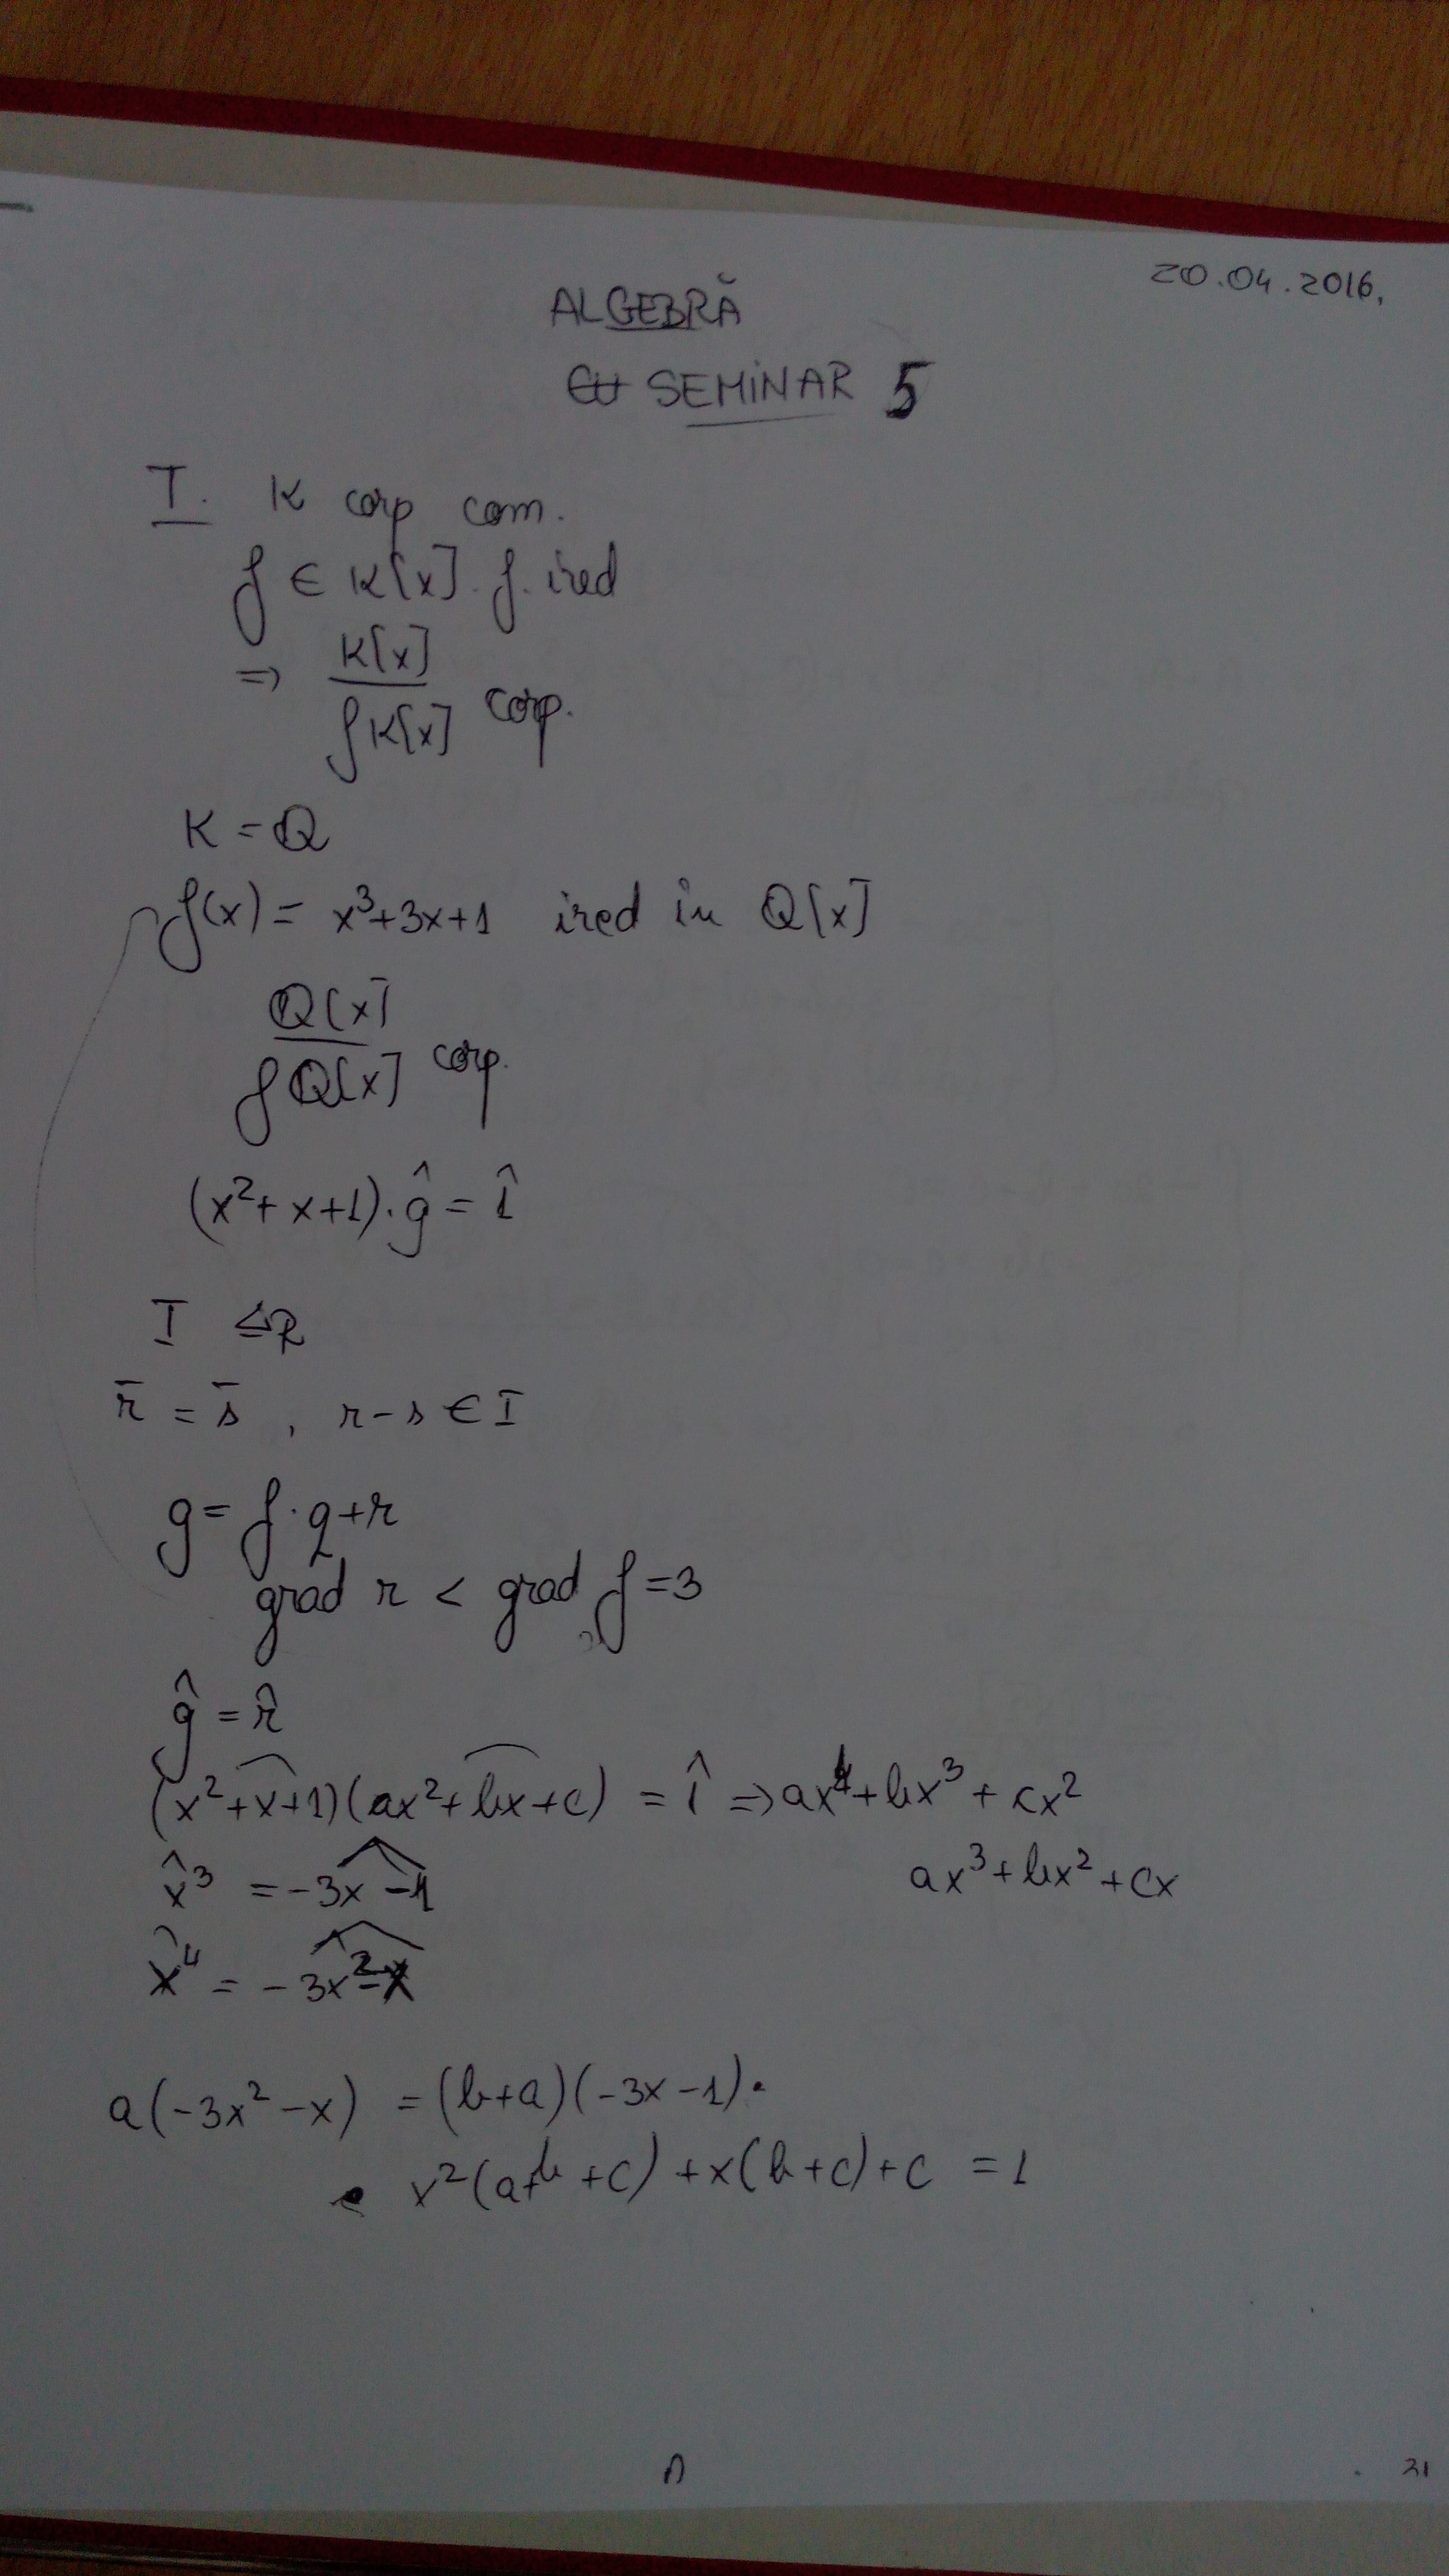 20.04.2016.
ALGEBRĂ
SEMINAR 5
I. K corp com.
f ∈ K[x]. f. ired
=> K[x] / fK[x] corp.
K = Q
f(x) = x³+3x+1 ired in Q[x]
Q[x] / fQ[x] corp.
(x²+x+1)·ĝ = 1̂
I ⊴R
r̄ = s̄ , r-s ∈ I
g = f·q+r
grad r < grad f = 3
ĝ = r̂
(x²+x+1)(ax²+bx+c) = 1̂ => ax⁴+bx³+cx²
ax³+bx²+cx
x̂³ = -3x-1
x̂⁴ = -3x²-x
a(-3x²-x) = (b+a)(-3x-1)·
· x²(a+b+c)+x(b+c)+c = 1
31